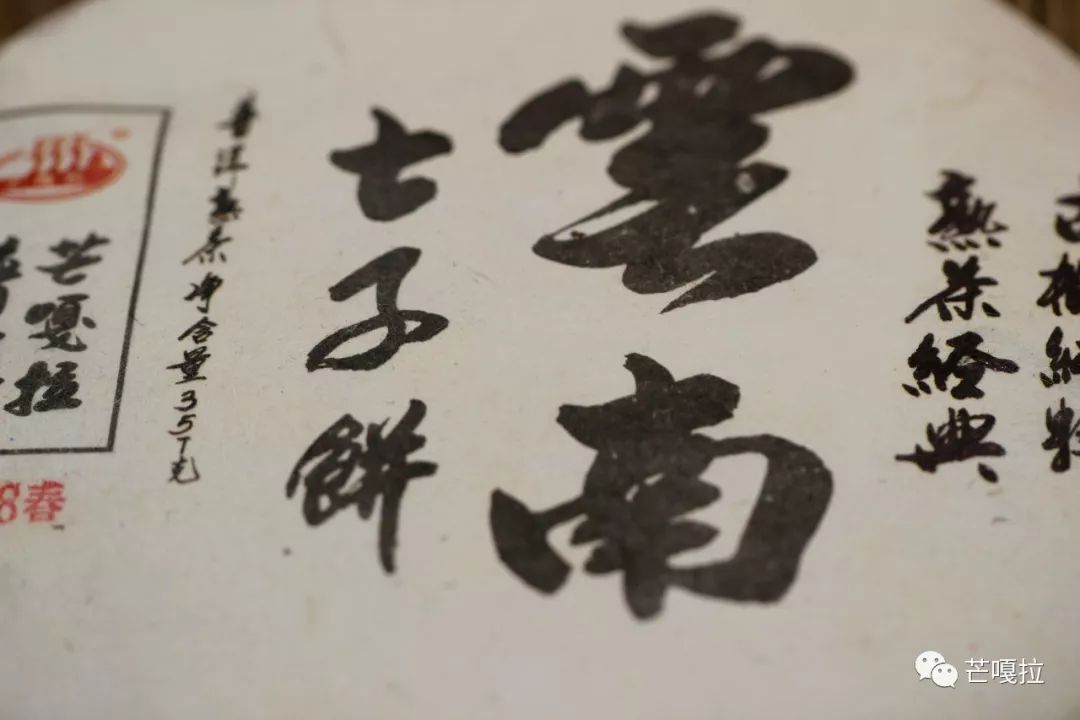 熟茶經典
雲南
七子餅
普洱熟茶净含量357克
芒嘎拉
8春
芒嘎拉